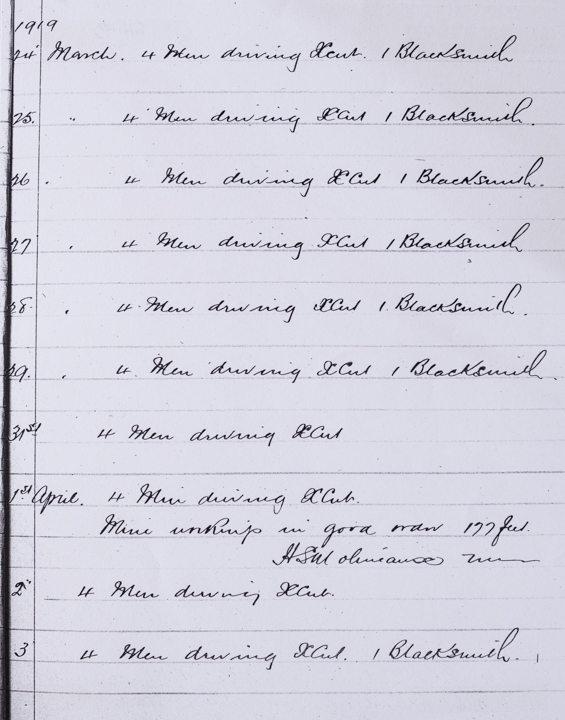 1919
24 March. 4 Men driving XCut. 1 Blacksmith
25. " 4 Men driving XCut 1 Blacksmith.
26 " 4 Men driving XCut 1 Blacksmith.
27 " 4 Men driving XCut 1 Blacksmith
28. " 4 Men driving XCut 1 Blacksmith.
29. " 4 Men driving XCut 1 Blacksmith.
31st 4 Men driving XCut
1st April. 4 Men driving XCut.
Mine workings in good order 177 feet.
2 4 Men driving XCut.
3 4 Men driving XCut. 1 Blacksmith.